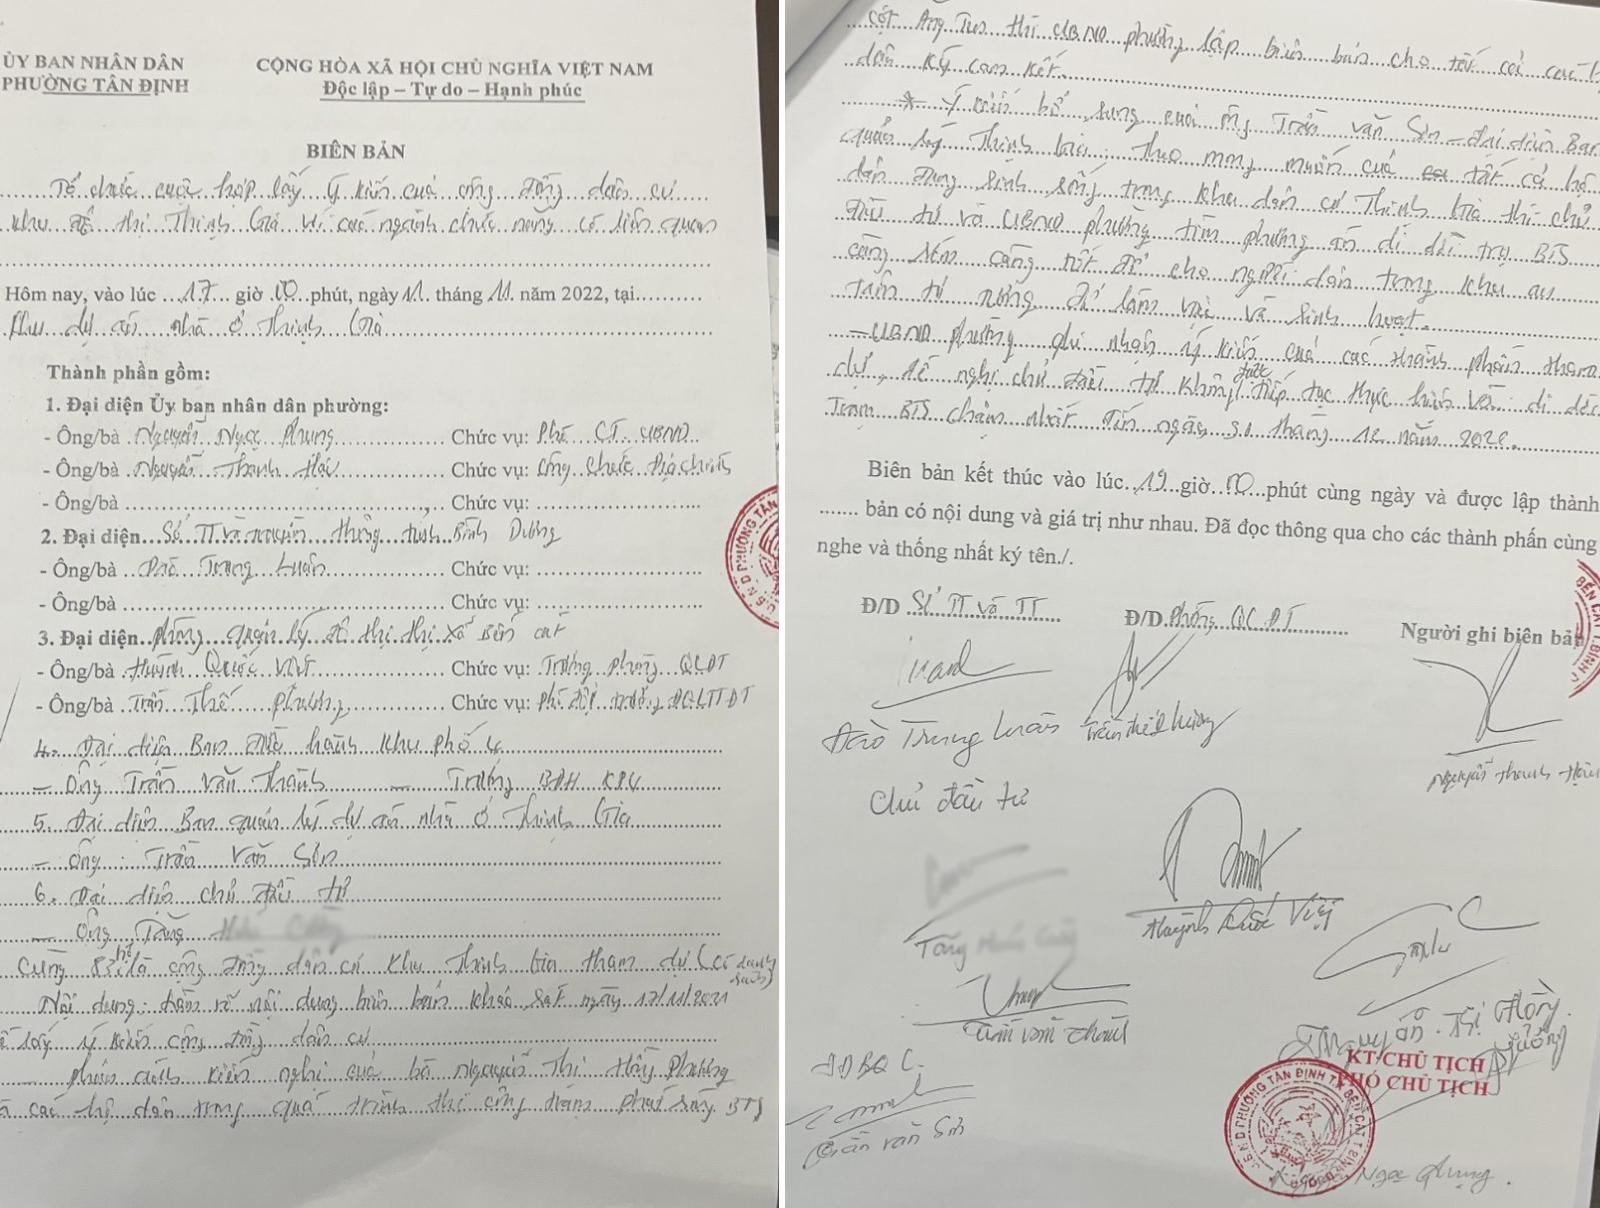 ỦY BAN NHÂN DÂN
PHƯỜNG TÂN ĐỊNH
CỘNG HÒA XÃ HỘI CHỦ NGHĨA VIỆT NAM
Độc lập – Tự do – Hạnh phúc
BIÊN BẢN
Tổ chức cuộc họp lấy ý kiến của cộng đồng dân cư
khu đô thị Thịnh Gia và các ngành chức năng có liên quan
Hôm nay, vào lúc 17 giờ 00 phút, ngày 11 tháng 11 năm 2022, tại
Khu dự án nhà ở Thịnh Gia
Thành phần gồm:
1. Đại diện Ủy ban nhân dân phường:
- Ông/bà Nguyễn Ngọc Phụng Chức vụ: Phó CT UBND
- Ông/bà Nguyễn Thanh Hải Chức vụ: Công chức Địa chính
- Ông/bà Chức vụ:
2. Đại diện Sở TT và truyền thông tỉnh Bình Dương
- Ông/bà Đào Trung Luân Chức vụ:
- Ông/bà Chức vụ:
3. Đại diện phòng quản lý đô thị thị xã Bến Cát
- Ông/bà Huỳnh Quốc Việt Chức vụ: Trưởng phòng QLĐT
- Ông/bà Trần Thế Phương Chức vụ: Phó đội trưởng ĐQLTTĐT
4. Đại diện Ban điều hành khu phố 4
– Ông Trần Văn Thành – Trưởng BĐH KP4
5. Đại diện Ban quản lý dự án nhà ở Thịnh Gia
– Ông: Trần Văn Sơn
6. Đại diện chủ đầu tư
– Ông Tăng
Cùng 83 hộ là cộng đồng dân cư khu Thịnh Gia tham dự (có danh sách)
Nội dung: làm rõ nội dung biên bản khảo sát ngày 17/11/2021
lấy ý kiến cộng đồng dân cư
– phản ánh kiến nghị của bà Nguyễn Thị Hồng Phương
và các hộ dân trong quá trình thi công trạm phát sóng BTS
cột Ang ten thì UBND phường lập biên bản cho tất cả các hộ
dân ký cam kết.
* Ý kiến bổ sung của ông Trần Văn Sơn – đại diện Ban
quản lý Thịnh Gia: Theo mong muốn của tất cả hộ
dân đang sinh sống trong khu dân cư Thịnh Gia thì chủ
đầu tư và UBND phường tìm phương án di dời trụ BTS
càng sớm càng tốt để cho người dân trong khu an
tâm tư tưởng để làm việc và sinh hoạt.
– UBND phường ghi nhận ý kiến của các thành phần tham
dự, đề nghị chủ đầu tư không được tiếp tục thực hiện và di dời
Trạm BTS chậm nhất đến ngày 31 tháng 12 năm 2022.
Biên bản kết thúc vào lúc 19 giờ 00 phút cùng ngày và được lập thành
bản có nội dung và giá trị như nhau. Đã đọc thông qua cho các thành phần cùng
nghe và thống nhất ký tên./.
Đ/D Sở TT và TT Đ/D Phòng QLĐT Người ghi biên bản
Đào Trung Luân Trần Thế Phương Nguyễn Thanh Hải
Chủ đầu tư
Huỳnh Quốc Việt
Tăng
Trần Văn Thành
Nguyễn Thị Hồng Phương
KT CHỦ TỊCH
PHÓ CHỦ TỊCH
Trần Văn Sơn
Nguyễn Ngọc Phụng